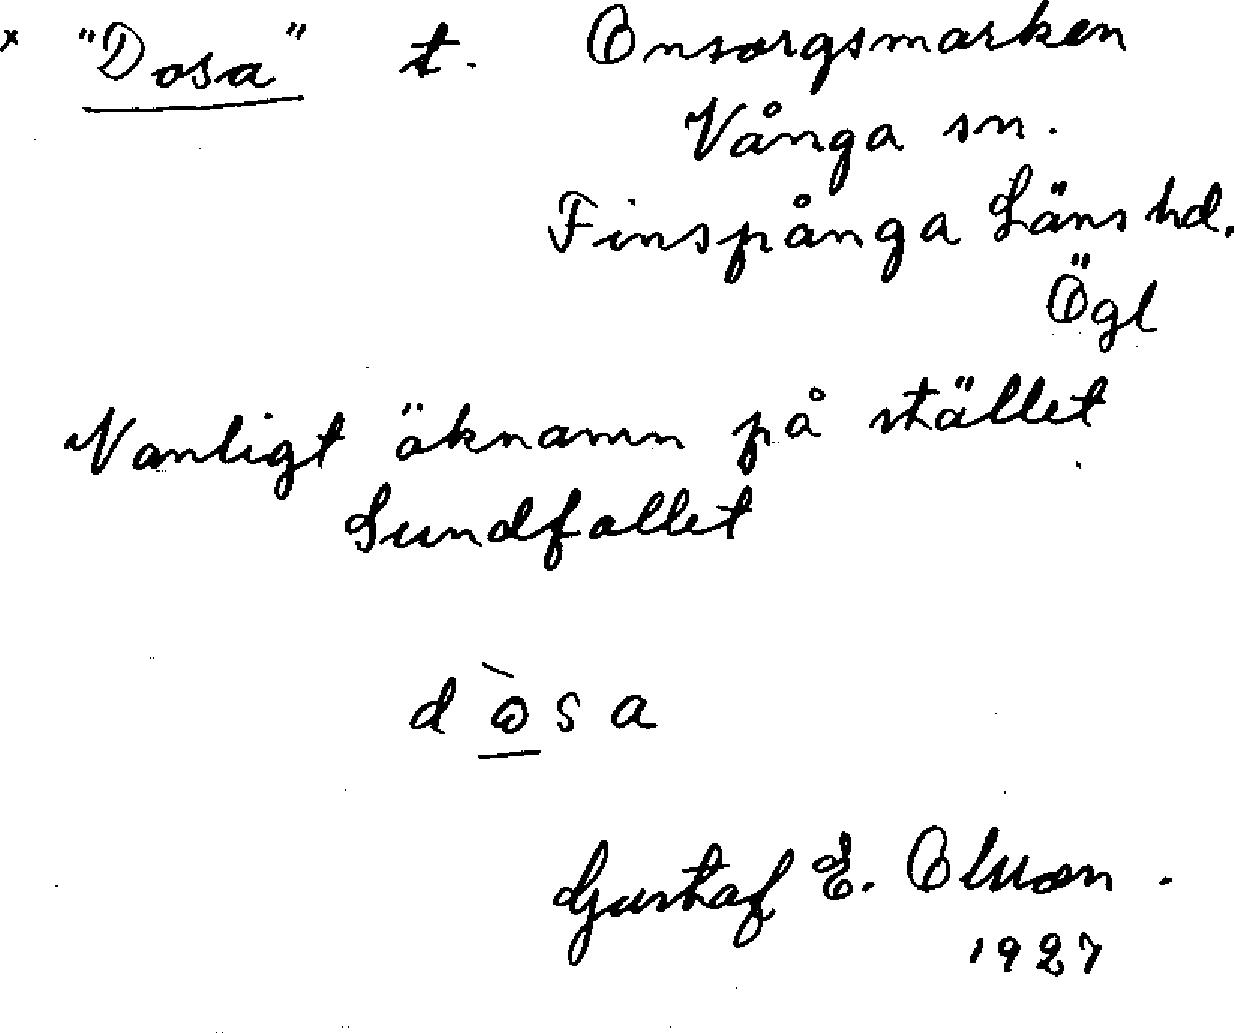 x "Dosa" t. Onsorgsmarken
Vånga sn.
Finspånga Läns hd.
Ögl
Vanligt öknamn på stället
Sundfallet
dòsa
Gustaf E. Olsson.
1927